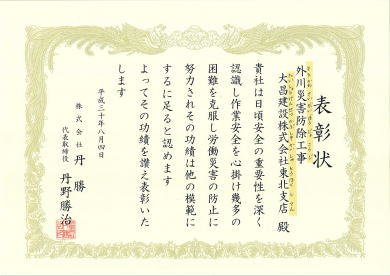 表彰状
外川災害防除工事
大昌建設株式会社東北支店 殿
貴社は日頃安全の重要性を深く
認識し作業安全を心掛け幾多の
困難を克服し労働災害の防止に
努力されその功績は他の模範に
するに足ると認めます
よってその功績を讃え表彰いた
します
平成三十年八月四日
株式会社 丹勝
代表取締役 丹野勝治